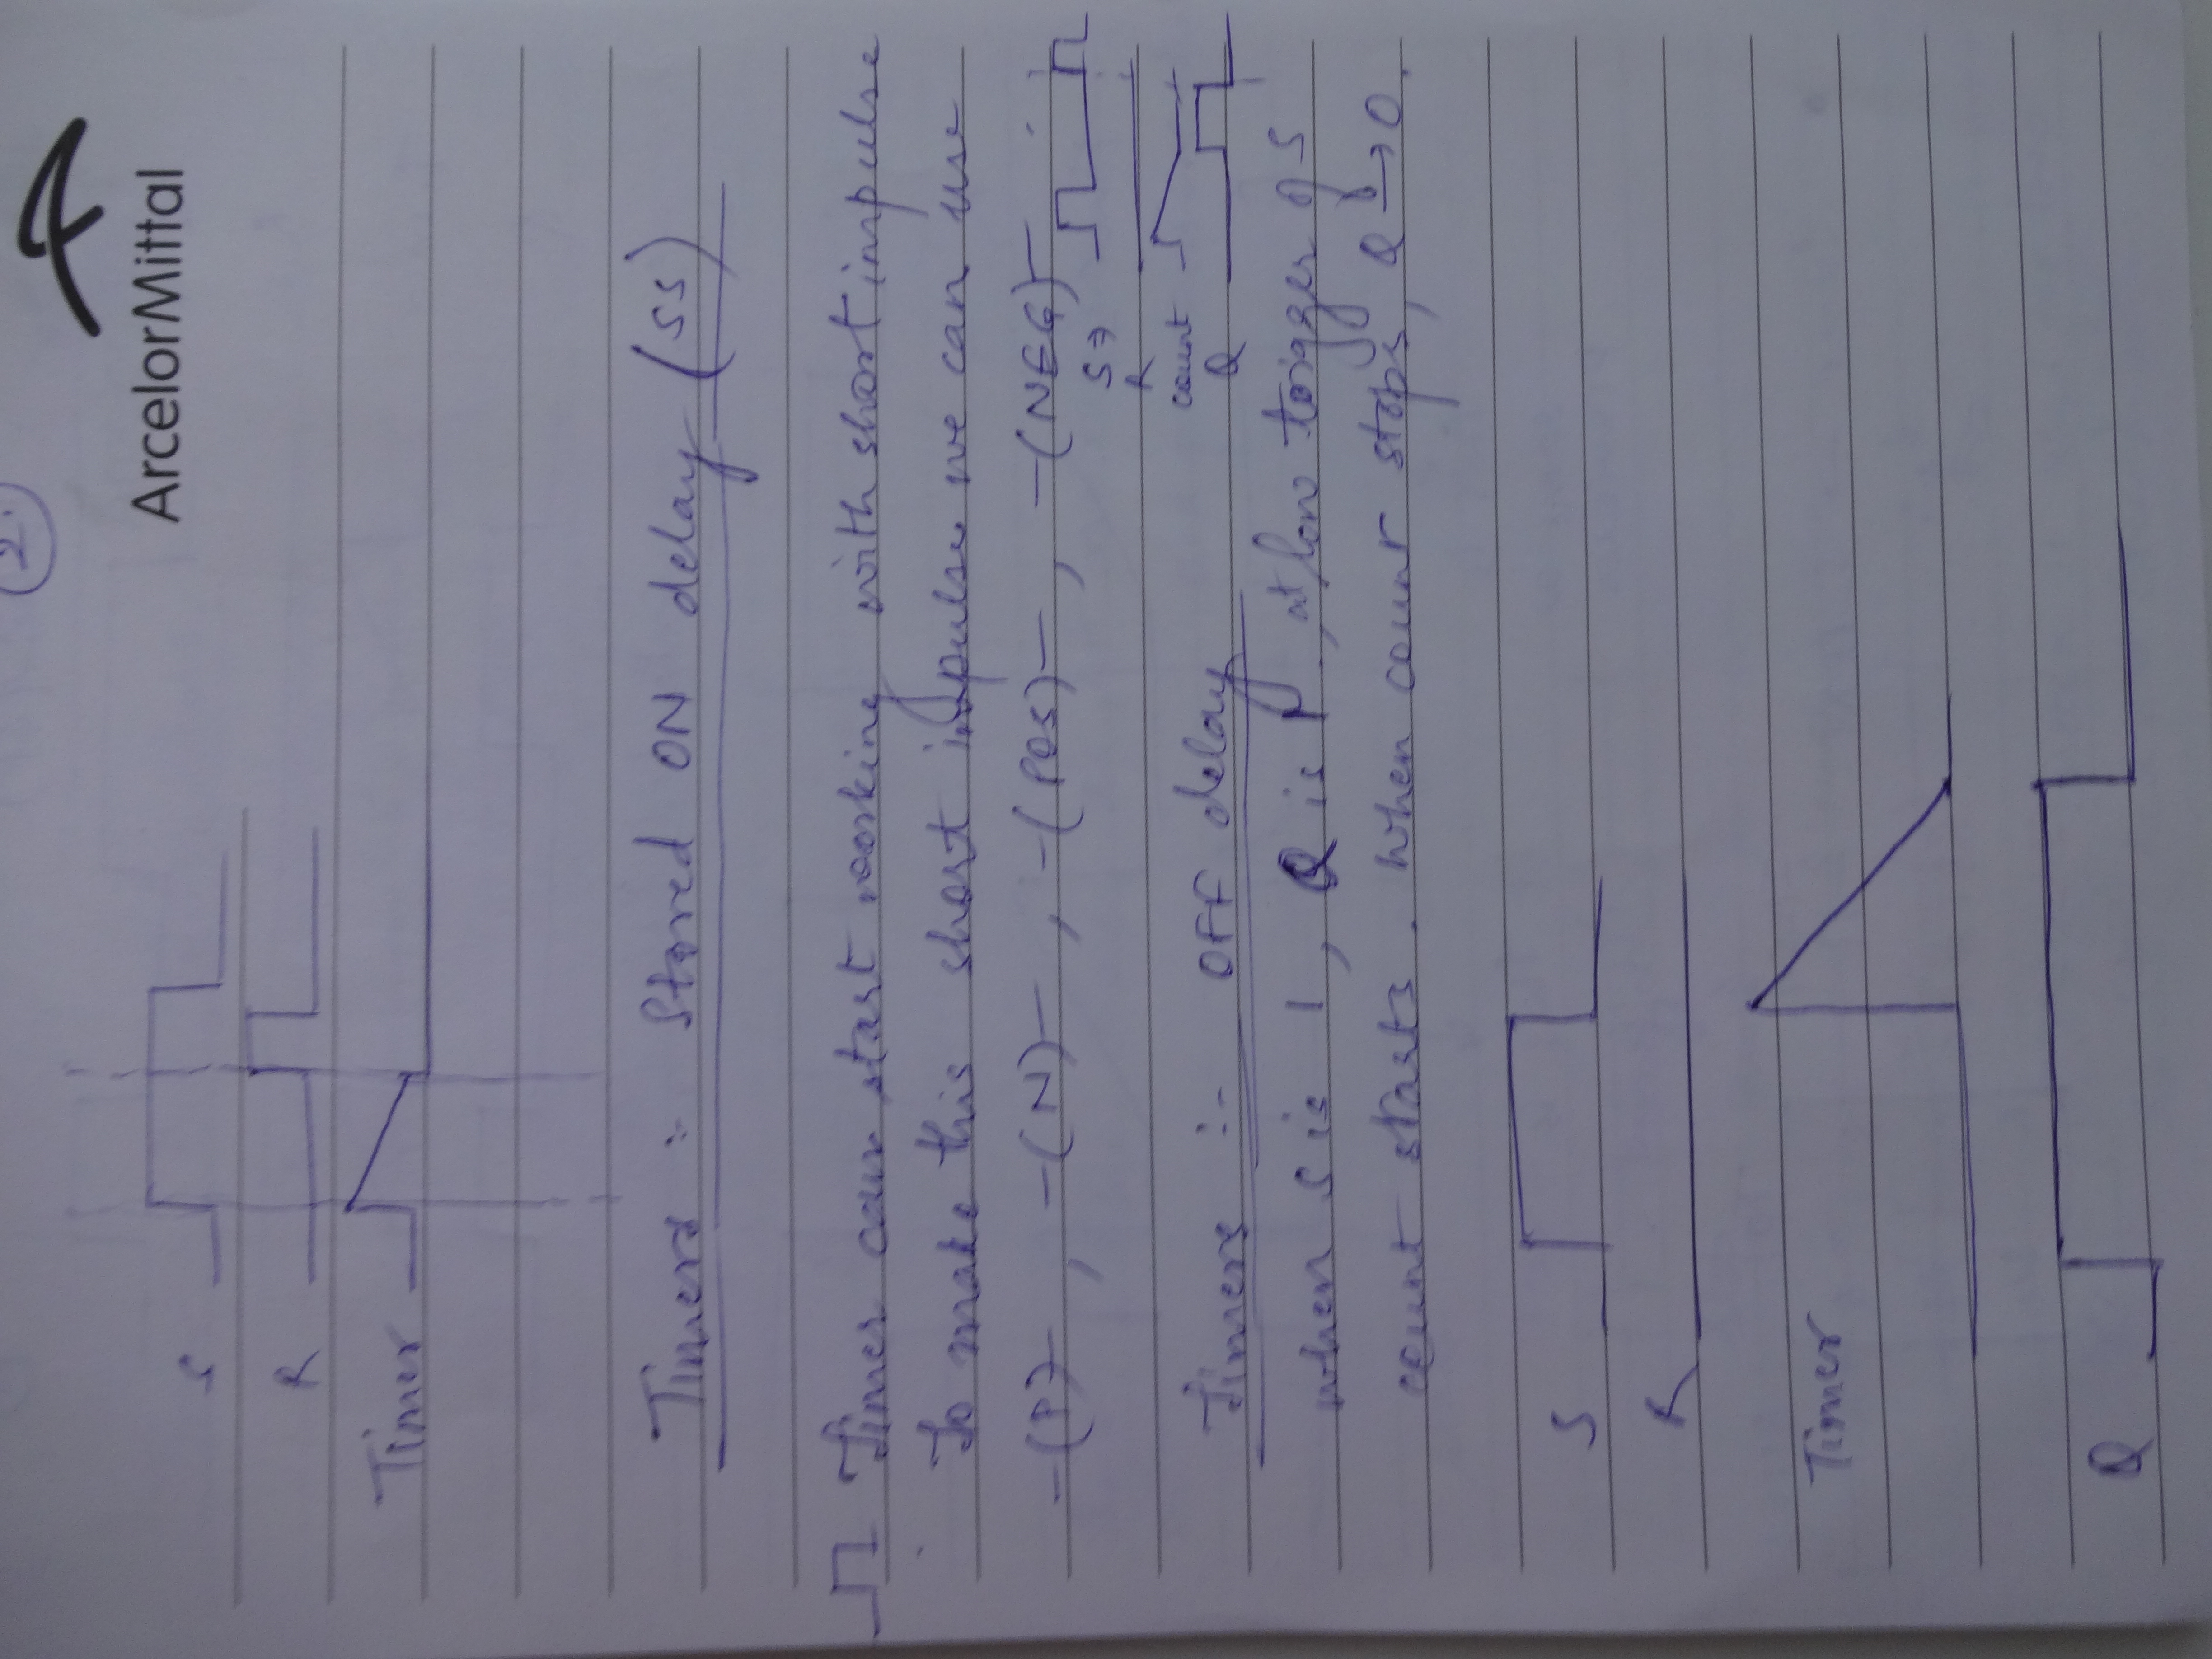 2.
ArcelorMittal
S
R
Timer
Timers :- Stored ON delay (SS)
Timer can start working with short impulse
To make this short impulse we can use
-(P)- , -(N)- , -(POS)- , -(NEG)-
S →
R
count
Q
Timers :- OFF delay
when S is 1, Q is 1, at low trigger of S
count starts. when count stops, Q → 0.
S
R
Timer
Q